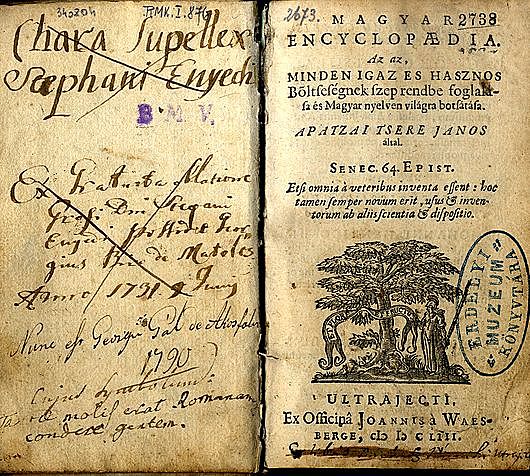 340204
RMK.I.876
Chara Supellex
Stephani Enyedi
B. M. V.
Ex Gratuita
Enyedi
de
Anno 1731. 9 Juny
Nunc est Georgii Gál de
1790
Cujus Symbolum:
Tantae molis erat Romanam
condere gentem.
2673.
MAGYAR 2738
ENCYCLOPÆDIA.
Az az,
MINDEN IGAZ ES HASZNOS
Bőltseségnek szep rendbe foglalá-
sa és Magyar nyelven világra botsátása.
APATZAI TSERE JANOS
által.
SENEC. 64. EPIST.
Etsi omnia à veteribus inventa essent: hoc
tamen semper novum erit, usus & inven-
torum ab aliis scientia & dispositio.
ERDÉLYI
MUZEUM
KÖNYVTÁRA
ULTRAJECTI,
Ex Officinâ JOANNIS à WAES-
BERGE, CIↃ IↃ CLIII.